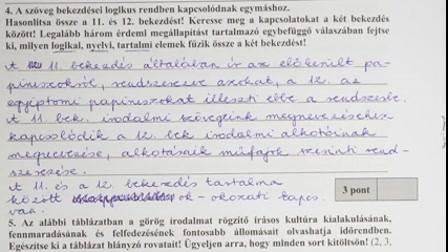 4. A szöveg bekezdései logikus rendben kapcsolódnak egymáshoz.
Hasonlítsa össze a 11. és 12. bekezdést! Keresse meg a kapcsolatokat a két bekezdés
között! Legalább három érdemi megállapítást tartalmazó egybefüggő válaszában fejtse
ki, milyen logikai, nyelvi, tartalmi elemek fűzik össze a két bekezdést!
A 11. bekezdés általában ír az előkerült pa-
píruszokról, rendszerezve azokat, a 12. az
egyiptomi papíruszokat illeszti ebbe a rendszerbe.
A 11. bek. irodalmi szövegeink megnevezéséhez
kapcsolódik a 12. bek irodalmi alkotóinak
megnevezése, alkotásaik műfajok szerinti rend-
szerezése.
A 11. és a 12. bekezdés tartalma
között ok - okozati kapcs.
van.
3 pont
5. Az alábbi táblázatban a görög irodalmat rögzítő írásos kultúra kialakulásának,
fennmaradásának és felfedezésének fontosabb állomásait olvashatja időrendben.
Egészítse ki a táblázat hiányzó rovatait! Ügyeljen arra, hogy minden sort kitöltsön! (2, 3,